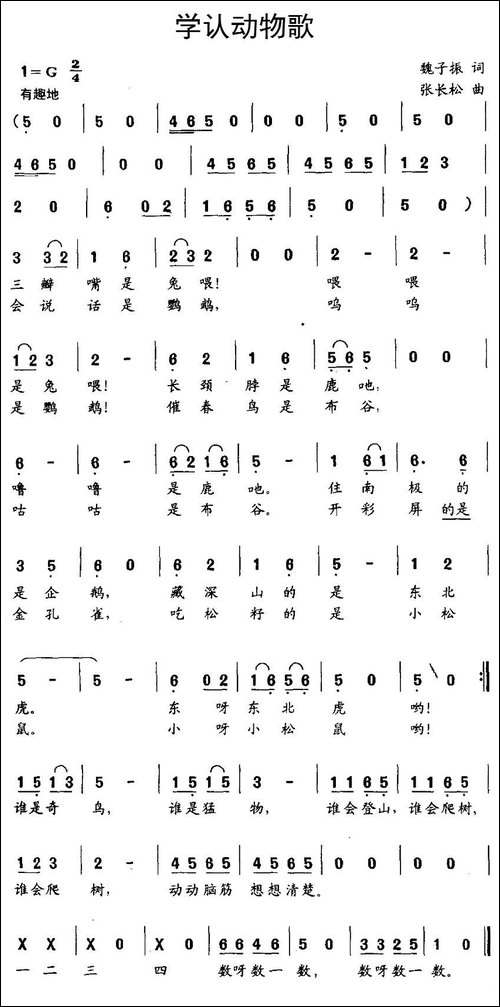 学认动物歌
1=G 2/4
魏子振 词
有趣地
张长松 曲
(5 0 | 5 0 | 4650 | 0 0 | 5 0 | 5 0 |
4650 | 0 0 | 4565 | 4565 | 123 |
2 0 | 6 02 | 1656 | 5 0 | 5 0 )|
3 32 | 1 6 | 232 | 0 0 | 2 - | 2 - |
三 瓣 嘴 是 兔 喂! 喂 喂
会 说 话 是 鹦 鹉, 呜 呜
123 | 2 - | 6 2 | 1 6 | 565 | 0 0 |
是 兔 喂! 长 颈 脖 是 鹿 吔,
是 鹦 鹉! 催 春 鸟 是 布 谷,
6 - | 6 - | 62 16 | 5 - | 1 61 | 6. 6 |
噜 噜 是 鹿 吔。 住 南 极 的
咕 咕 是 布 谷。 开 彩 屏 的是
3 5 | 6 0 | 6 2 | 1 6 | 5 - | 1 2 |
是 企 鹅, 藏 深 山 的 是 东 北
金 孔 雀, 吃 松 籽 的 是 小 松
5 - | 5 - | 6 02 | 1656 | 5 0 | 5 0 :||
虎。 东 呀 东 北 虎 哟!
鼠。 小 呀 小 松 鼠 哟!
1513 | 2 - | 1515 | 3 - | 1165 | 1165 |
谁是奇 鸟, 谁是猛 物, 谁会登山, 谁会爬树,
123 | 2 - | 4565 | 4565 | 0 0 | 0 0 |
谁会爬 树, 动动脑筋 想想清楚。
X X | X 0 | X X | X 0 | 6646 | 5 0 | 3325 | 1 0 ||
一 二 三 四 数呀数一 数, 数呀数一 数。